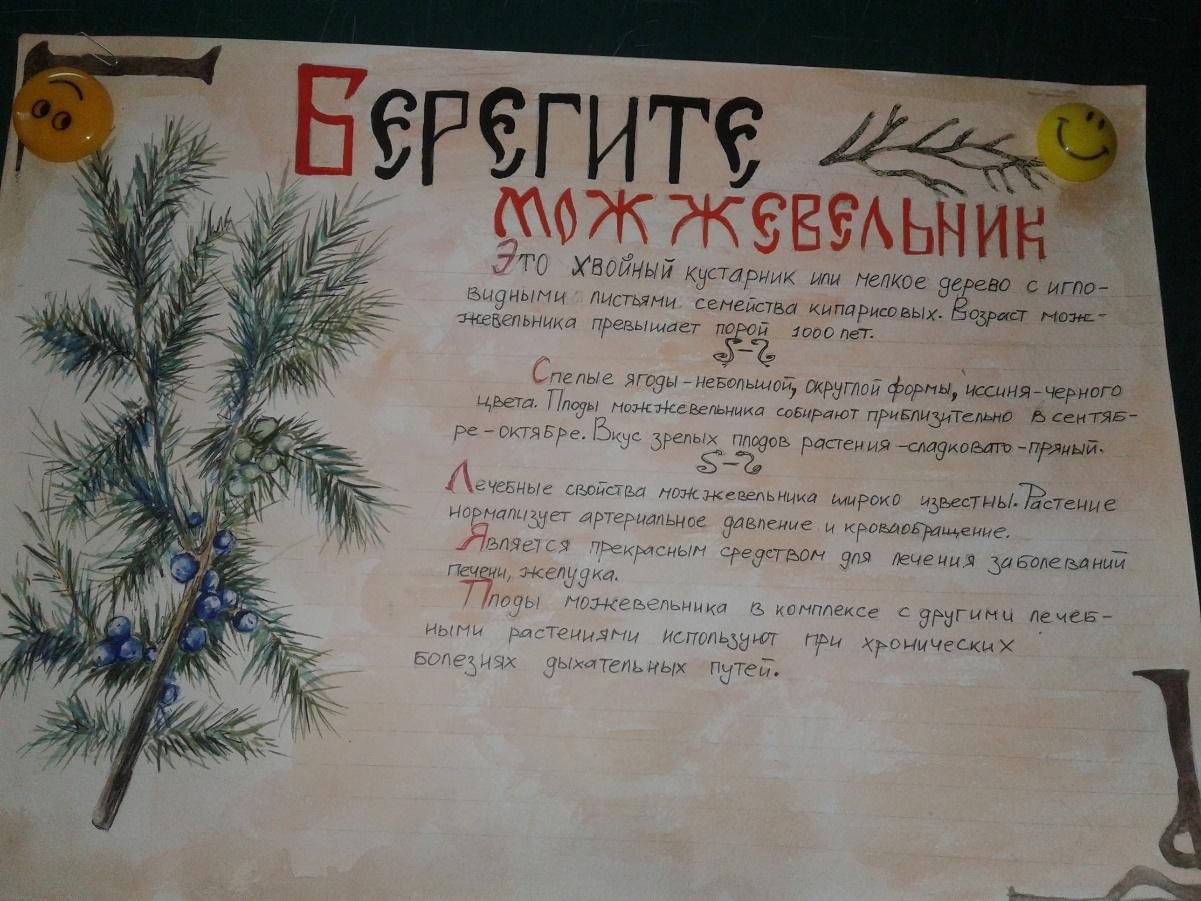 Берегите
можжевельник
Это хвойный кустарник или мелкое дерево с игло-
видными листьями семейства кипарисовых. Возраст мож-
жевельника превышает порой 1000 лет.
Спелые ягоды - небольшой, округлой формы, иссиня-черного
цвета. Плоды можжевельника собирают приблизительно в сентяб-
ре - октябре. Вкус зрелых плодов растения - сладковато - пряный.
Лечебные свойства можжевельника широко известны. Растение
нормализует артериальное давление и кроваобращение.
Является прекрасным средством для лечения заболеваний
печени, желудка.
Плоды можевельника в комплексе с другими лечеб-
ными растениями используют при хронических
болезнях дыхательных путей.